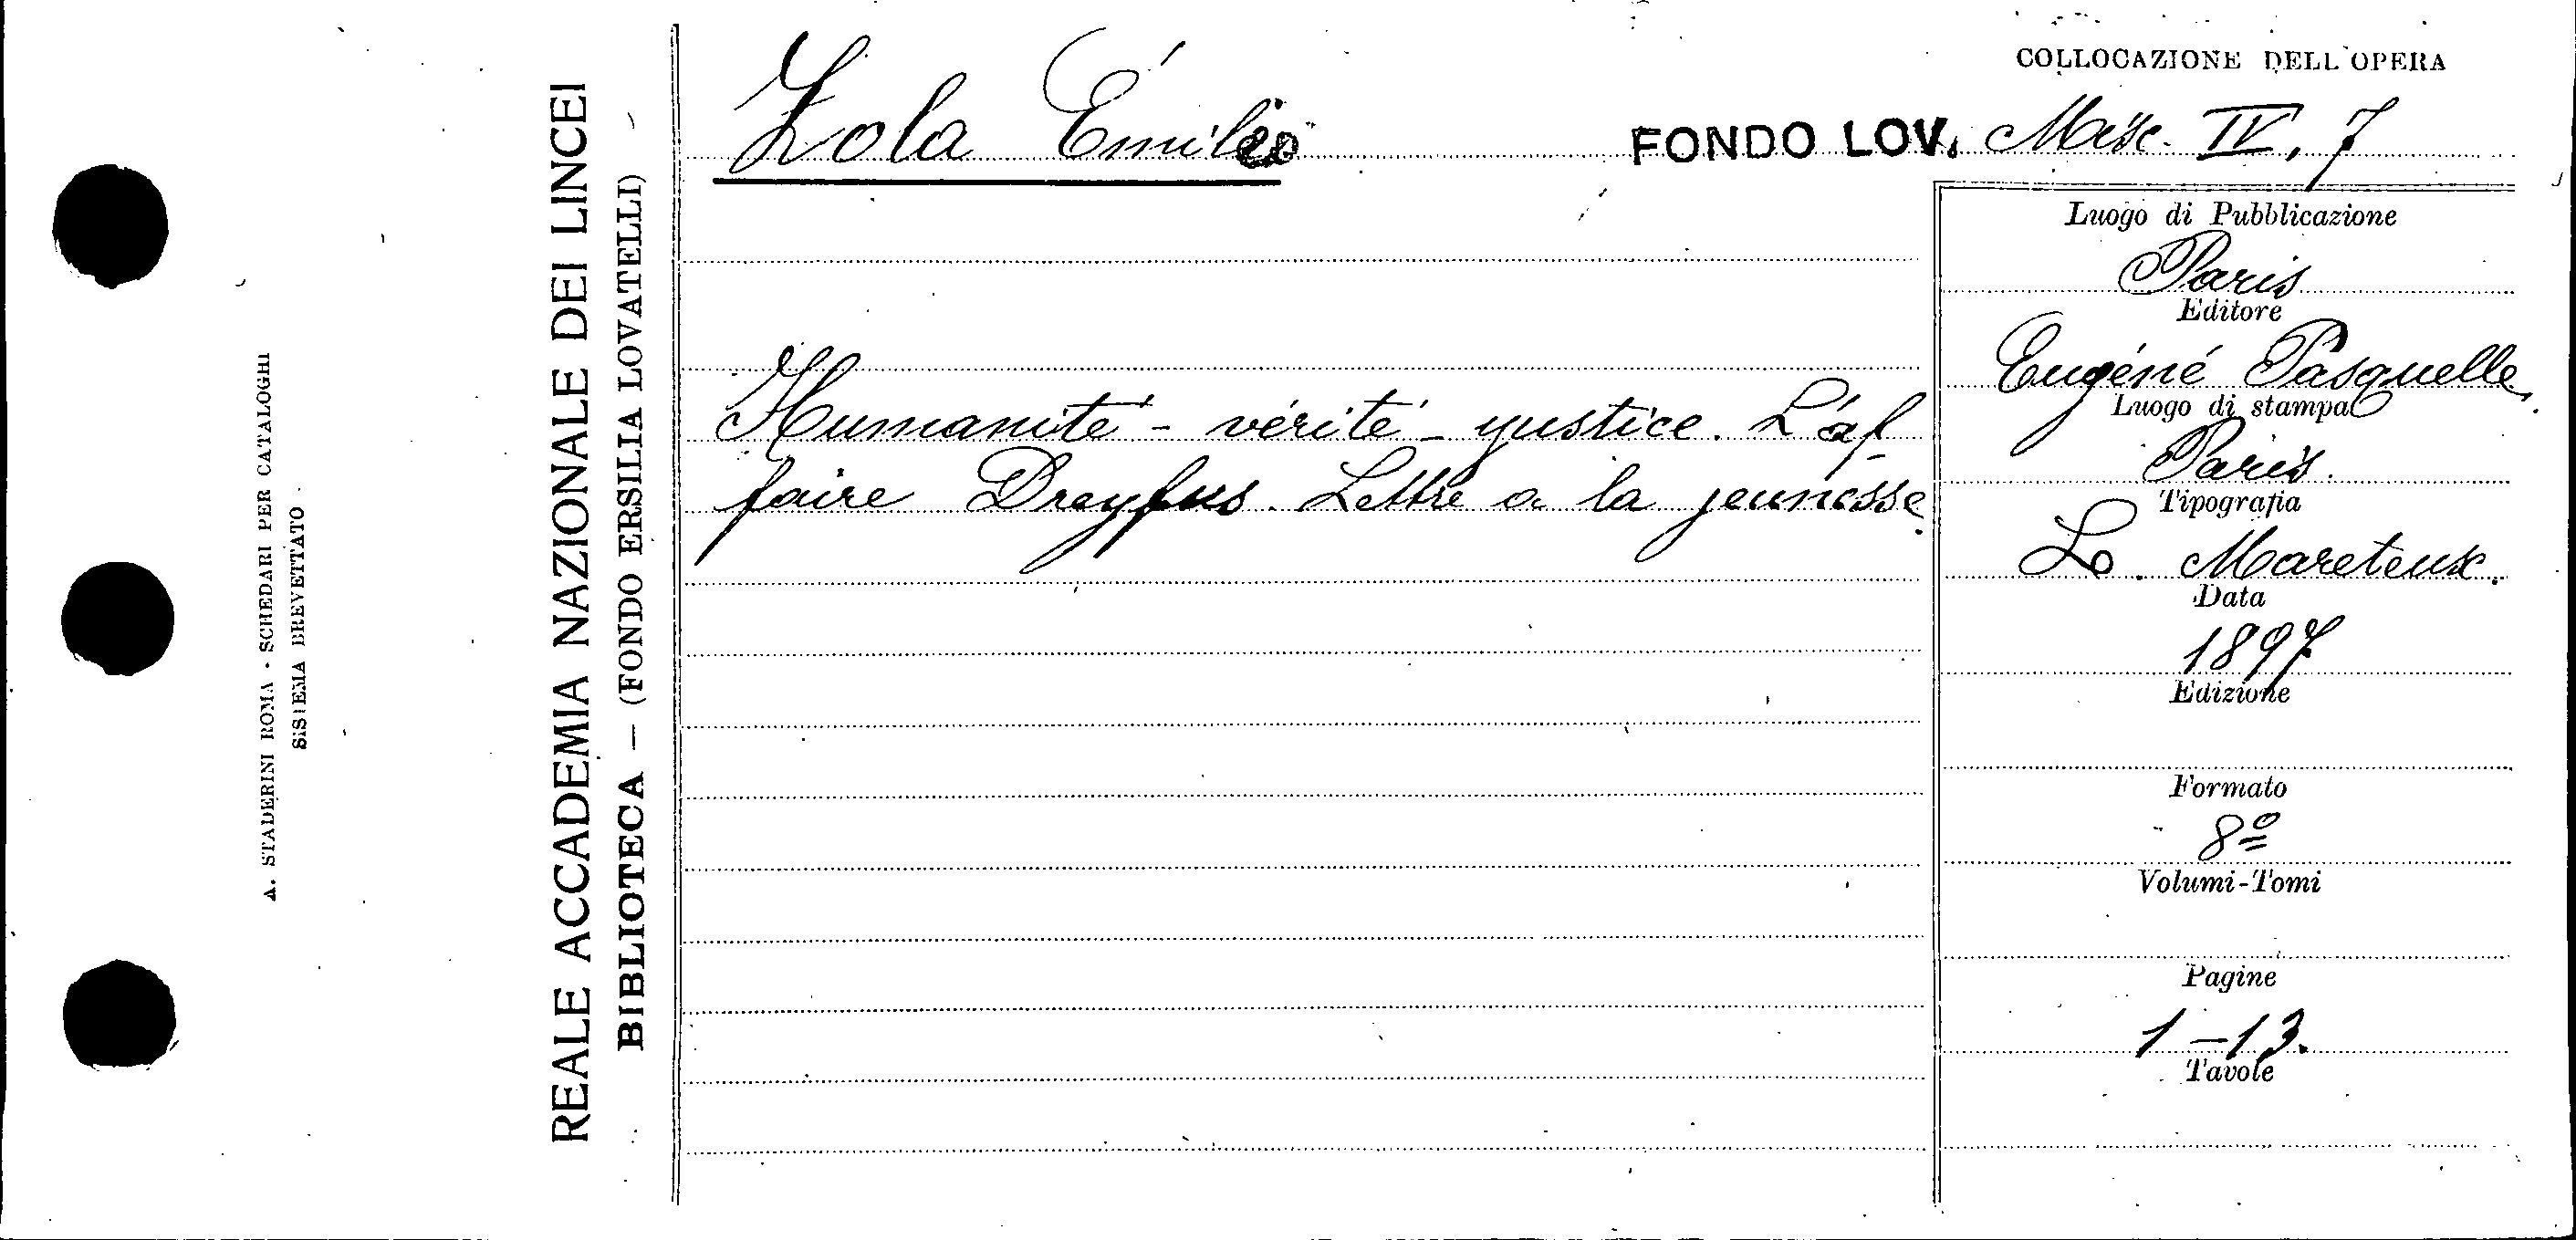 A. STADERINI ROMA - SCHEDARI PER CATALOGHI
SISTEMA BREVETTATO
REALE ACCADEMIA NAZIONALE DEI LINCEI
BIBLIOTECA — (FONDO ERSILIA LOVATELLI)
Zola Émile
COLLOCAZIONE DELL'OPERA
FONDO LOV. Misc. IV, 7
Humanité - vérité - justice. L'af-
faire Dreyfus. Lettre a la jeunesse.
Luogo di Pubblicazione
Paris
Editore
Eugéné Pasquelle.
Luogo di stampa
Paris.
Tipografia
L. Mareteux.
Data
1897
Edizione
Formato
8º
Volumi-Tomi
Pagine
1-13.
Tavole